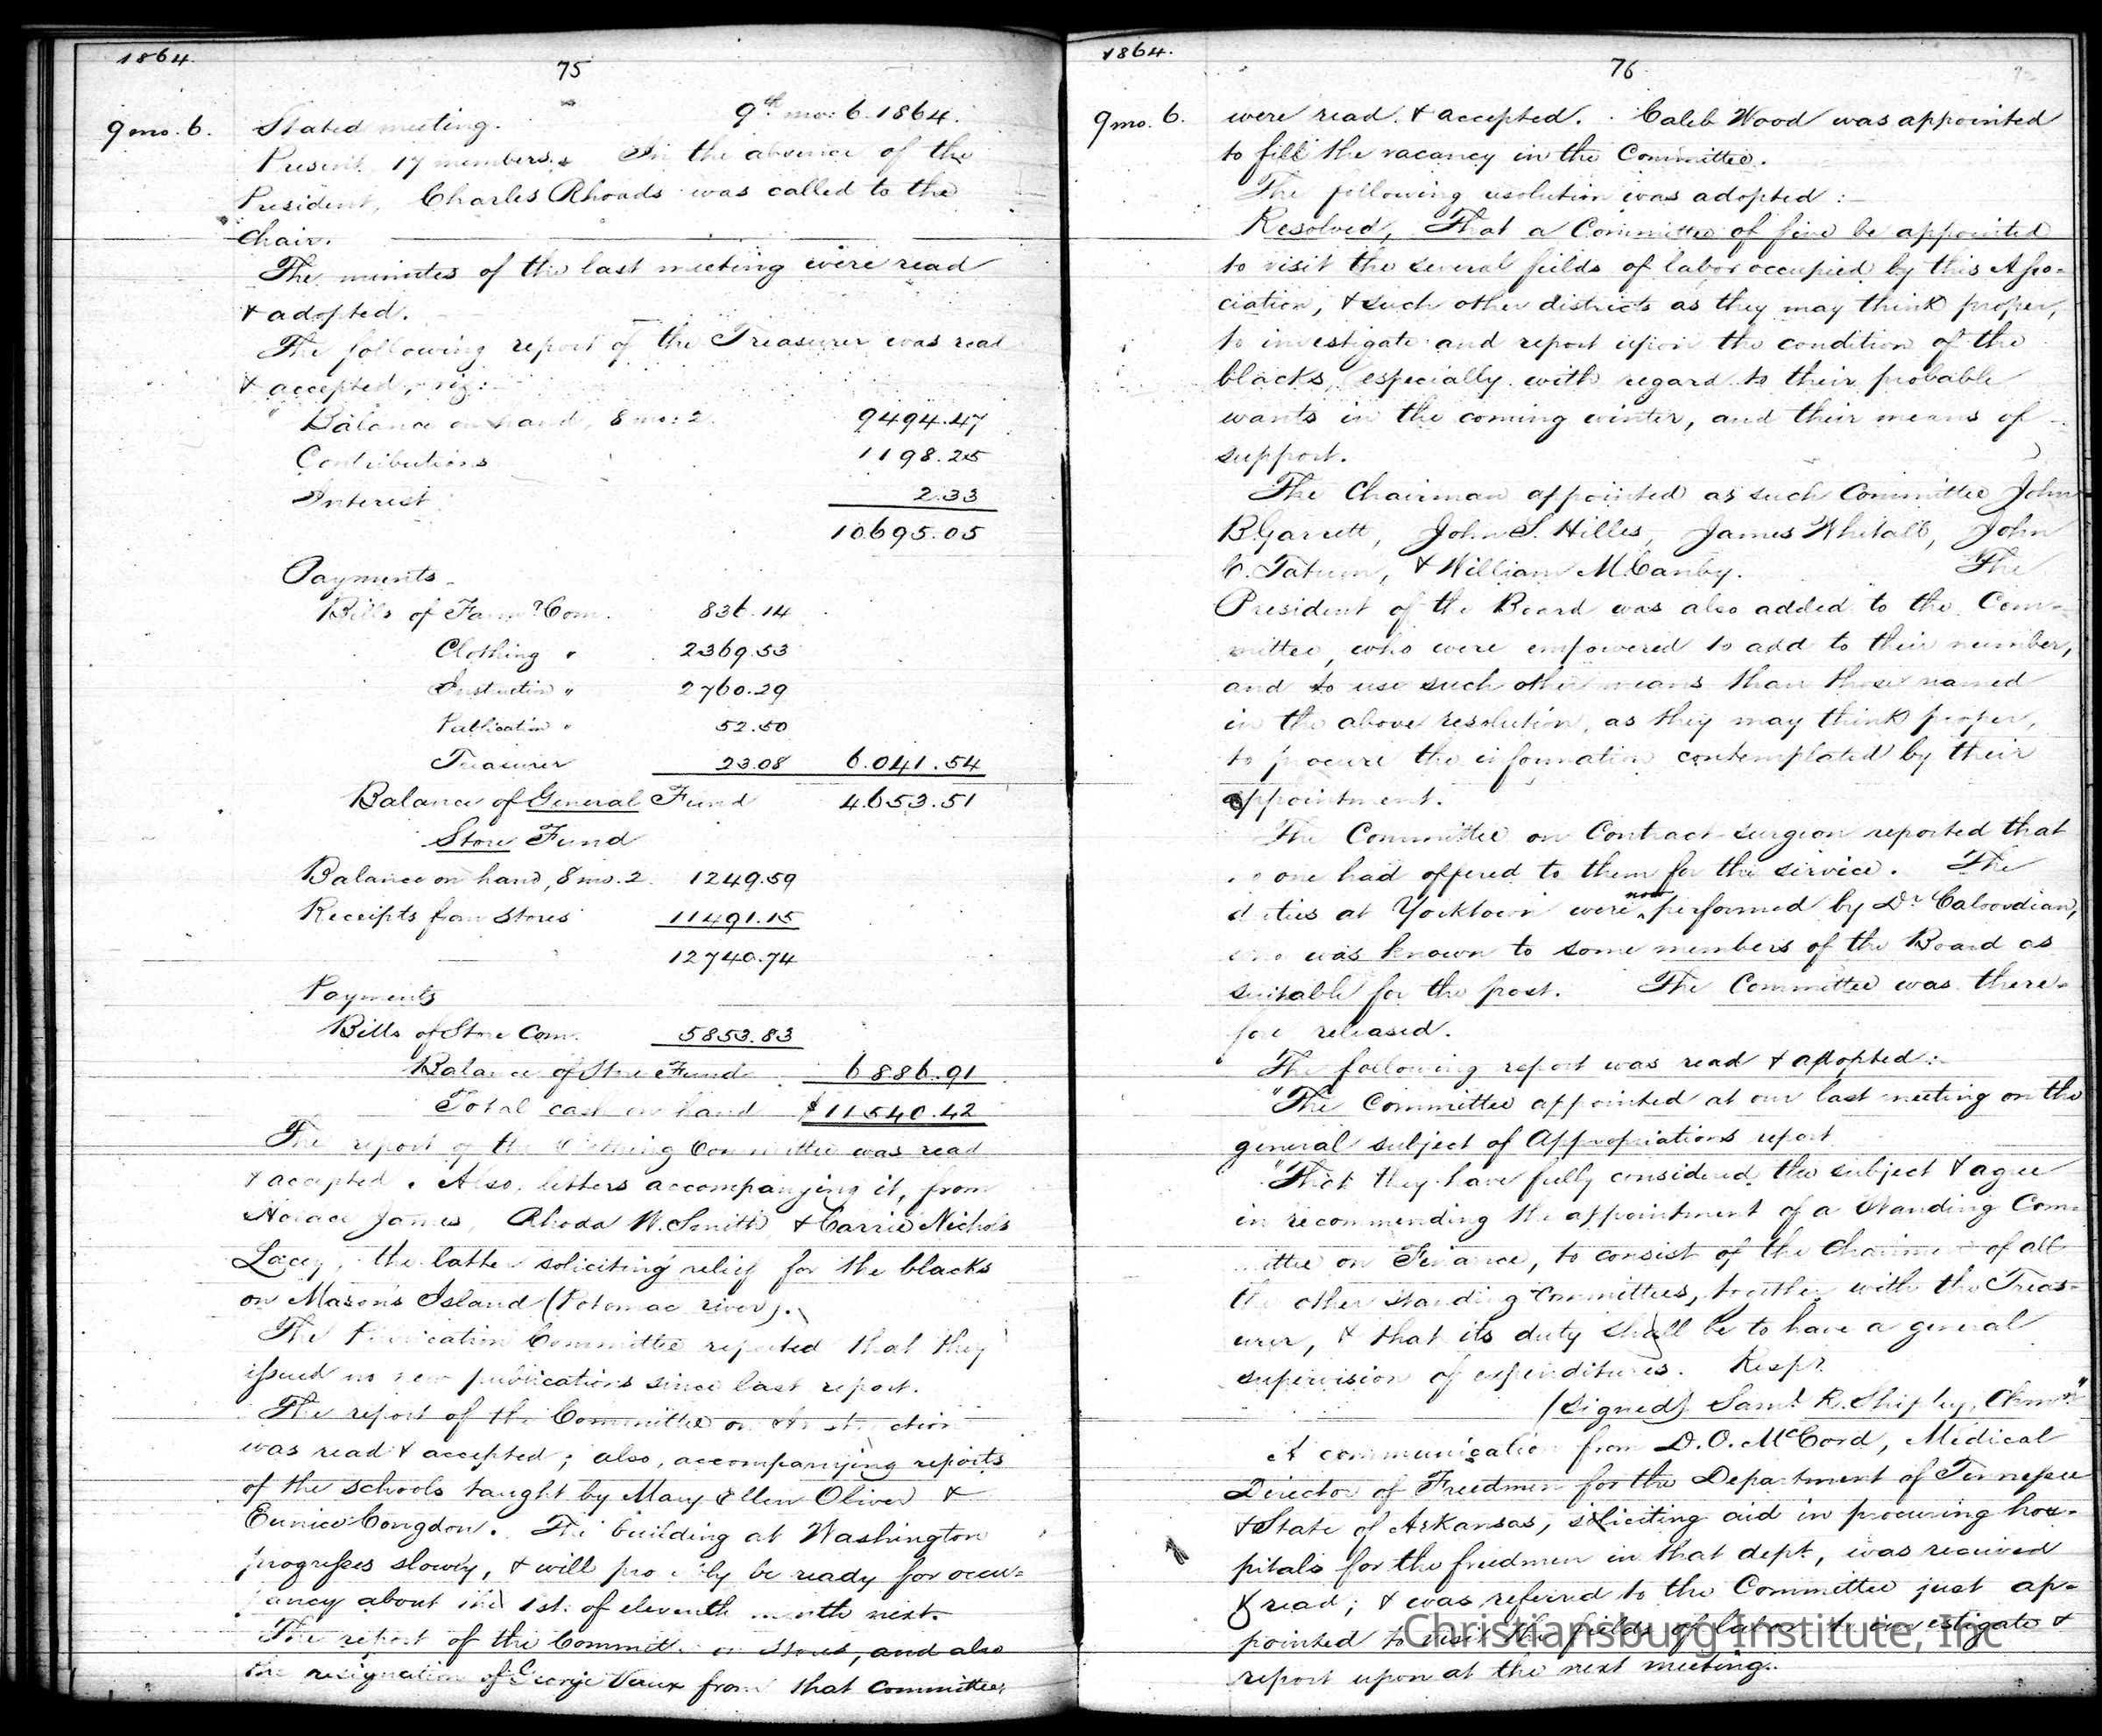 1864.
75
9 mo. 6.
Stated meeting. 9th mo: 6. 1864.
Present, 17 members. In the absence of the
President, Charles Rhoads was called to the
Chair.
The minutes of the last meeting were read
& adopted.
The following report of the Treasurer was read
& accepted, viz:
" Balance on hand, 8 mo: 2. 9494.47
Contributions 1198.25
Interest 2.33
10695.05
Payments
Bills of Farmg Com. 836.14
Clothing " 2369.53
Instruction " 2760.29
Publication " 52.50
Treasurer 23.08 6.041.54
Balance of General Fund 4.653.51
Store Fund
Balance on hand, 8 mo. 2. 1249.59
Receipts from Stores 11491.15
12740.74
Payments
Bills of Store Com. 5853.83
Balance of Store Fund 6886.91
Total cash on hand $11540.42
The report of the Clothing Committee was read
& accepted. Also, letters accompanying it, from
Horace James, Rhoda W. Smith, & Carrie Nichols
Lacey, the latter soliciting relief for the blacks
on Mason's Island (Potomac river).
The Publication Committee reported that they
issued no new publications since last report.
The report of the Committee on Instruction
was read & accepted; also, accompanying reports
of the schools taught by Mary Ellen Oliver &
Eunice Congdon. The building at Washington
progresses slowly, & will probably be ready for occu=
pancy about the 1st. of eleventh month next.
The report of the Committee on Stores, and also
the resignation of George Vaux from that Committee,
1864.
76
9 mo. 6.
were read & accepted. Caleb Wood was appointed
to fill the vacancy in the Committee.
The following resolution was adopted:
Resolved, That a Committee of five be appointed
to visit the several fields of labor occupied by this Asso=
ciation, & such other districts as they may think proper,
to investigate and report upon the condition of the
blacks, especially with regard to their probable
wants in the coming winter, and their means of
support.
The Chairman appointed as such Committee John
B. Garrett, John S. Hilles, James Whitall, John
C. Tatum, & William M. Canby. The
President of the Board was also added to the Com=
mittee, who were empowered to add to their number,
and to use such other means than those named
in the above resolution, as they may think proper,
to procure the information contemplated by their
appointment.
The Committee on Contract surgeon reported that
no one had offered to them for the service. The
duties at Yorktown were now performed by Dr
who was known to some members of the Board as
suitable for the post. The Committee was there=
fore released.
The following report was read & adopted:
"The Committee appointed at our last meeting on the
general subject of Appropriations report
"That they have fully considered the subject & agree
in recommending the appointment of a Standing Com
mittee on Finance, to consist of the Chairmen of all
the other Standing Committees, together with the Treas=
urer, & that its duty shall be to have a general
supervision of expenditures. Respy
(Signed) Saml R. Shipley, Chmn"
A communication from D. O. McCord, Medical
Director of Freedmen for the Department of Tennessee
& State of Arkansas, soliciting aid in procuring hos=
pitals for the freedmen in that dept, was received
& read; & was referred to the Committee just ap=
pointed to visit the fields of labor to investigate &
report upon at the next meeting.
Christiansburg Institute, Inc